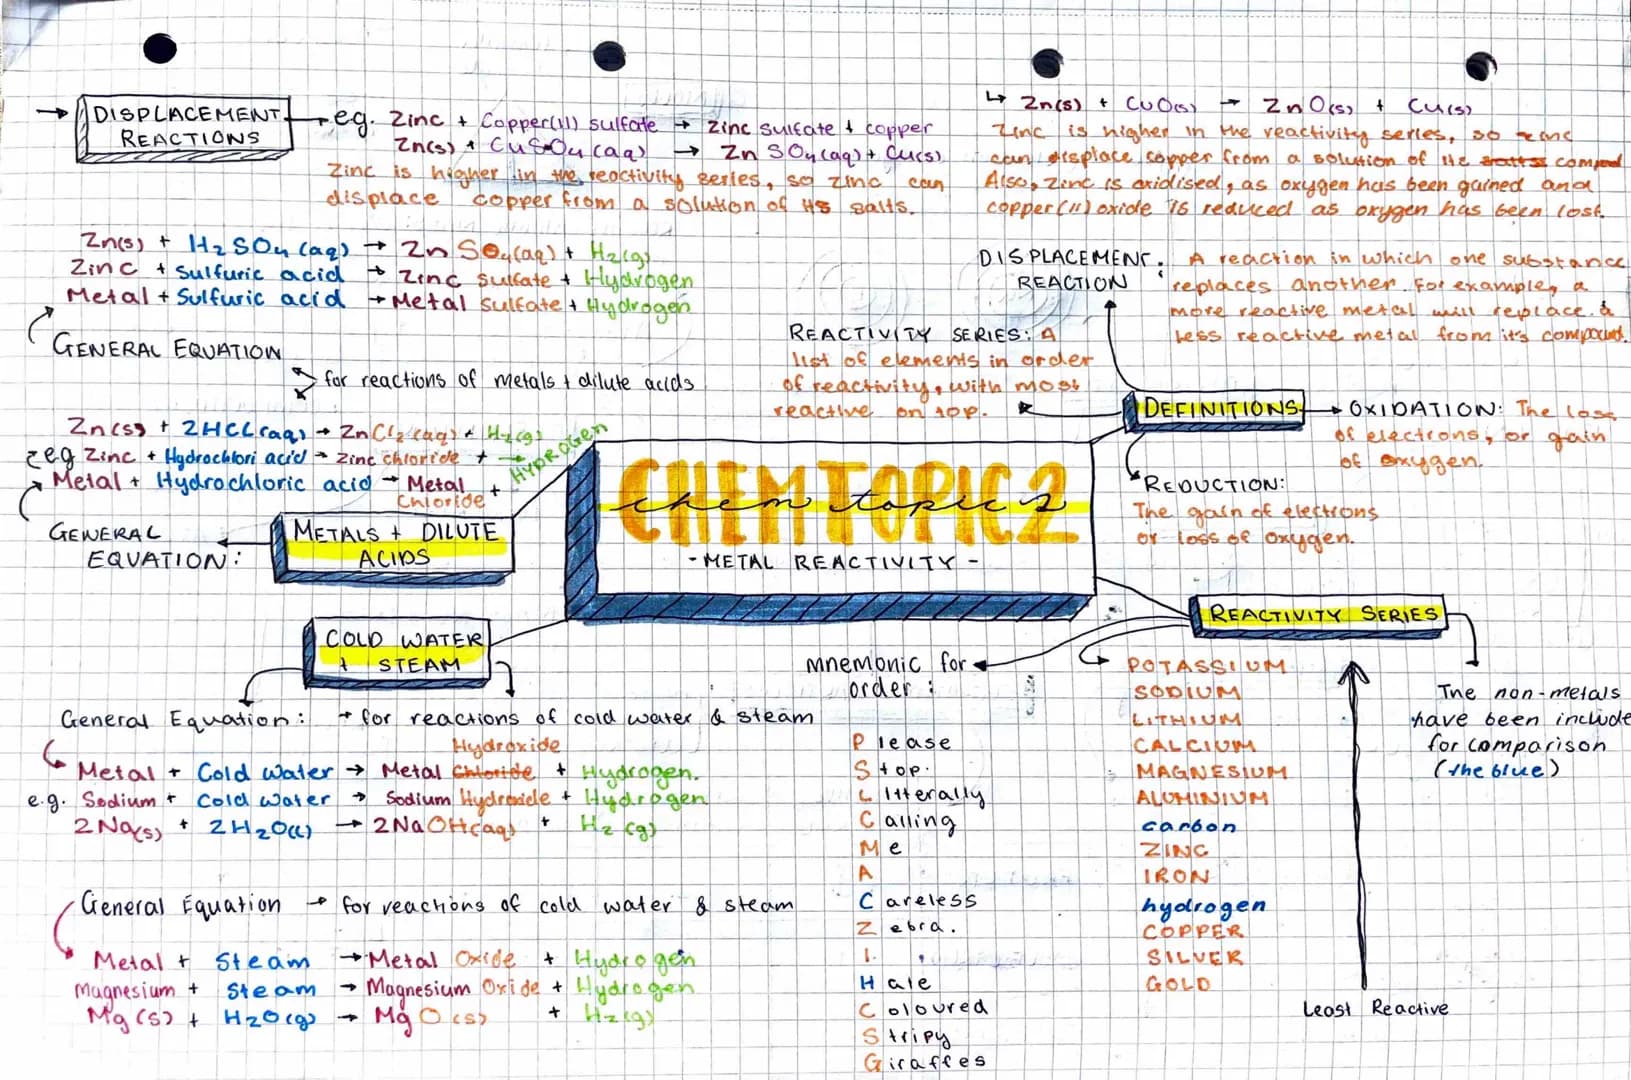 → DISPLACEMENT REACTIONS
→ eg. Zinc + Copper(II) sulfate → Zinc sulfate + copper
Zn(s) + CuSO4(aq) → ZnSO4(aq) + Cu(s)
Zinc is higher in the reactivity series, so zinc can
displace copper from a solution of its salts.
↳ Zn(s) + CuO(s) → ZnO(s) + Cu(s)
Zinc is higher in the reactivity series, so zinc
can displace copper from a solution of its salts compnd
Also, zinc is oxidised, as oxygen has been gained and
copper(II) oxide is reduced as oxygen has been lost.
Zn(s) + H2SO4(aq) → ZnSO4(aq) + H2(g)
Zinc + Sulfuric acid → Zinc sulfate + Hydrogen
Metal + Sulfuric acid → Metal sulfate + Hydrogen
GENERAL EQUATION
for reactions of metals + dilute acids
Zn(s) + 2HCl(aq) → ZnCl2(aq) + H2(g)
eg Zinc + Hydrochlori acid → Zinc chloride + → HYDROGEN
Metal + Hydrochloric acid → Metal
Chloride +
GENERAL
EQUATION:
METALS + DILUTE
ACIDS
DISPLACEMENT
REACTION
: A reaction in which one substance
replaces another. For example, a
more reactive metal will replace a
less reactive metal from it's compound.
REACTIVITY SERIES: A
list of elements in order
of reactivity, with most
reactive on top.
DEFINITIONS
→ OXIDATION: The loss
of electrons, or gain
of oxygen.
REDUCTION:
The gain of electrons
or loss of oxygen.
CHEM TOPIC 2
chem topic 2
- METAL REACTIVITY -
COLD WATER
+ STEAM
General Equation: → for reactions of cold water & steam
Hydroxide
Metal + Cold Water → Metal Chloride + Hydrogen.
e.g. Sodium + Cold Water → Sodium Hydroxide + Hydrogen
2Na(s) + 2H2O(l) → 2NaOH(aq) + H2(g)
General Equation → for reactions of cold water & steam
Metal + Steam → Metal Oxide + Hydrogen
Magnesium + Steam → Magnesium Oxide + Hydrogen
Mg(s) + H2O(g) → MgO(s) + H2(g)
REACTIVITY SERIES
mnemonic for
order:
Please
Stop.
Litterally
Calling
Me
A
Careless
Zebra.
I.
Hale
Coloured
Stripy
Giraffes
POTASSIUM
SODIUM
LITHIUM
CALCIUM
MAGNESIUM
ALUMINIUM
carbon
ZINC
IRON
hydrogen
COPPER
SILVER
GOLD
Least Reactive
The non-metals
have been include
for comparison
(the blue)